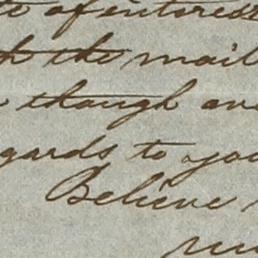 of interest
the mail
though
gards to you
Believe